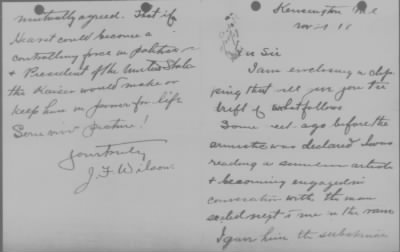 Kensington
Nov
Dear Sir
I am enclosing a clip
ping that will give you the
brief of what follows
Some
ago before the
armistice was declared I was
reading a
article
& becoming engaged in
conversation with the man
next to me in the same
I gave him the substance
mutually agreed. That if
Hearst could become a
controlling force in politics
& President of the United States
the Kaiser would make or
keep him in power for life
Some picture!
Yours truly
J. F. Wilson